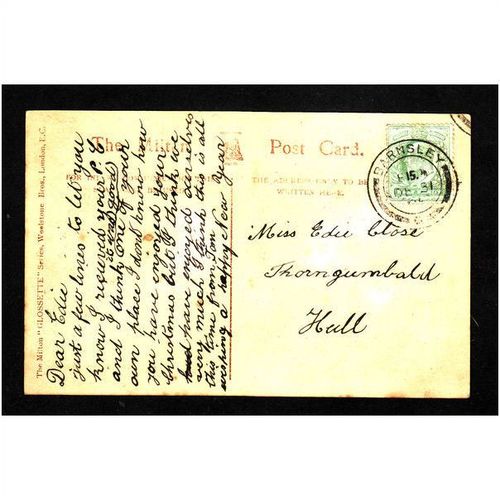 The Milton "GLOSSETTE" Series, Woolstone Bros., London, E.C.
The Milton
Post Card.
THE ADDRESS ONLY TO BE
WRITTEN HERE.
BARNSLEY
DE 31
Dear Edie
just a few lines to let you
know I received your P.C.
and I think one of your
own place I don't know how
you have enjoyed your
Christmas but I think we
have enjoyed ourselves
very much I think this is all
this time from Tom
wishing a happy New Year
Miss Edie Close
Thorngumbald
Hull